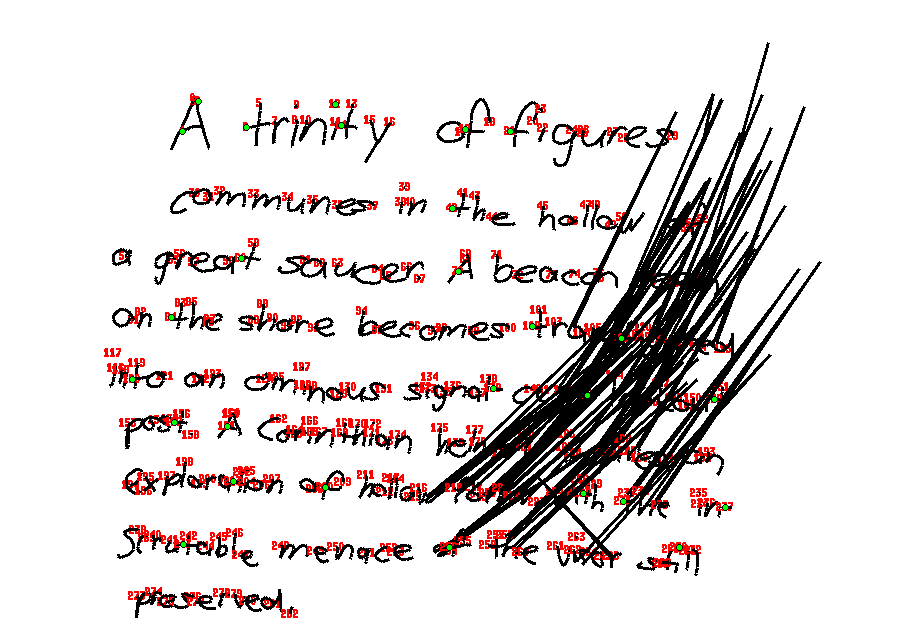 A trinity of figures
communes in the hollow of
a great saucer A beacon
on the shore becomes
into an ominous signal
post A Corinthian
exploration of hollow with the in-
Scrutable menace of the still
preserved.